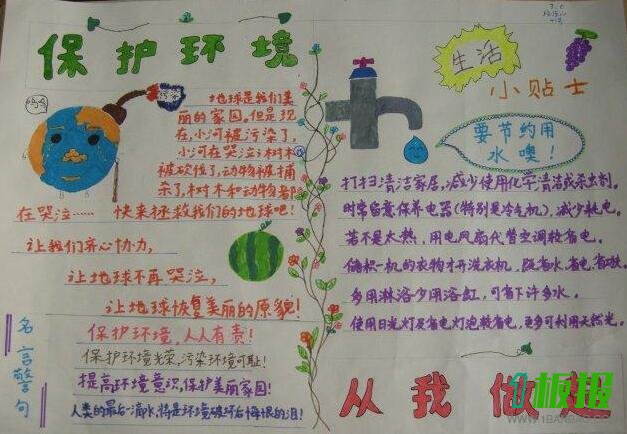 保护环境
地球是我们美
丽的家园。但是现
在,小河被污染了,
小河在哭泣;树木
被砍伐了,动物被捕
杀了,树木和动物都
在哭泣…… 快来拯救我们的地球吧!
让我们齐心协力,
让地球不再哭泣,
让地球恢复美丽的原貌!
名言警句
保护环境,人人有责!
保护环境光荣,污染环境可耻!
提高环境意识,保护美丽家园!
人类的最后一滴水,将是环境破坏后悔恨的泪!
3.6
生活
小贴士
要节约用
水噢!
打扫清洁家居,减少使用化学清洁或杀虫剂。
时常留意保养电器(特别是冷气机),减少耗电。
若不是太热,用电风扇代替空调较省电。
储积一机的衣物才开洗衣机,既省水,省电,省时间。
多用淋浴少用浴缸,可省下许多水。
使用日光灯及省电灯泡较省电,更多可利用天然光。
从我做起
板报
WWW.1BANBAO.COM